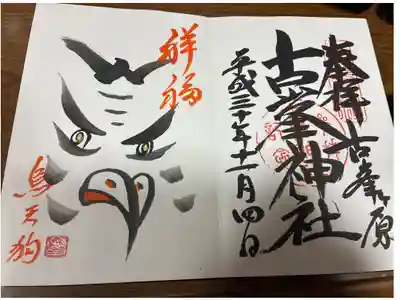 奉拝
古峯ヶ原
古峯神社
平成三十年十一月四日
祥福
烏天狗